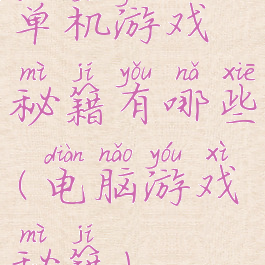 单机游戏
mì jí yǒu nǎ xiē
秘籍有哪些
diàn nǎo yóu xì
(电脑游戏
mì jí
秘籍)